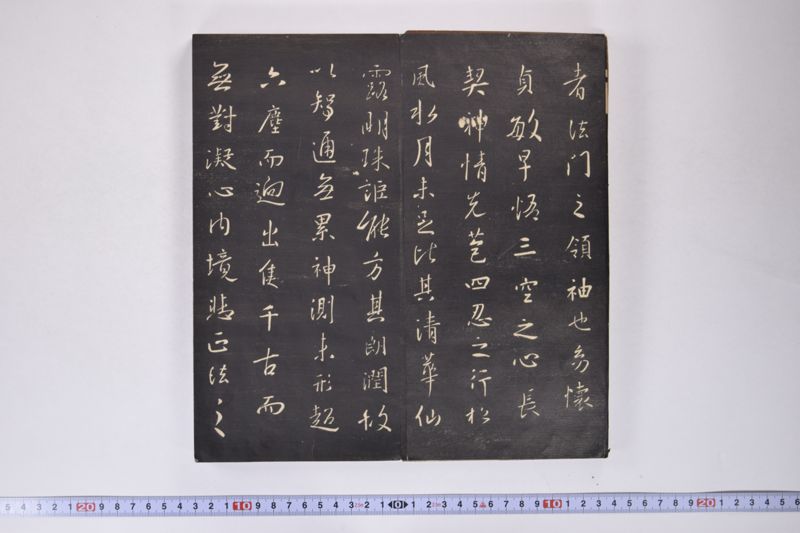 者法门之領袖也㓜懷
貞敏早悟三空之心長
契神情先苞四忍之行松
風水月未足比其清華仙
露明珠詎能方其朗潤故
以智通無累神測未形超
六塵而迥出隻千古而
無對凝心内境悲正法之
5 4 3 2 1 20 9 8 7 6 5 4 3 2 1 10 9 8 7 6 5 4 3 2 1 0 1 2 3 4 5 6 7 8 9 10 1 2 3 4 5 6 7 8 9 20 1 2 3 4 5 6